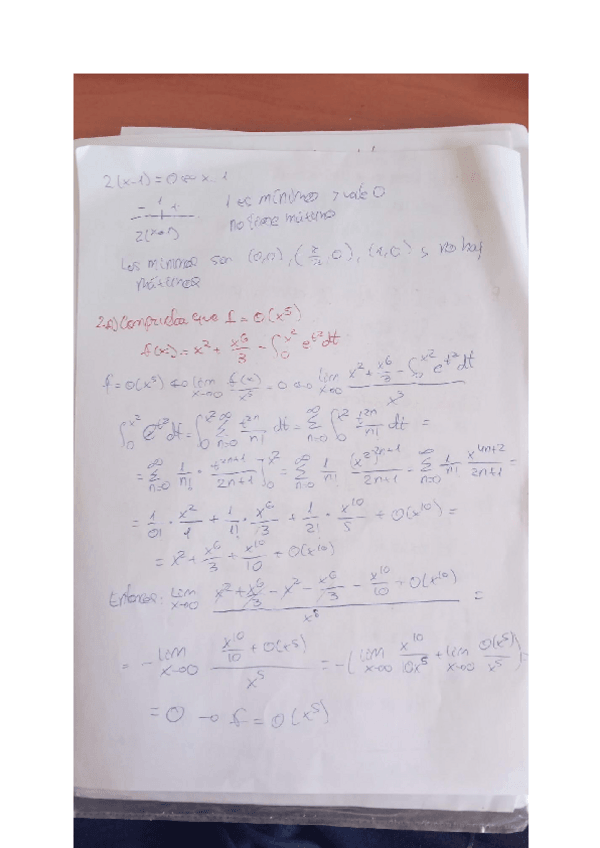 2(x-1)=0 ⇔ x=1
- 1 +
1 es mínimo y vale 0
2(x-1)
no tiene máximo
Los mínimos son (0,0), (π/2, 0), (1,0) y no hay
máximos
2a) Comprueba que f = o(x^5)
f(x) = x^2 + x^6/3 - ∫_0^{x^2} e^{t^2} dt
f = o(x^5) ⇔ lim_{x→0} f(x)/x^5 = 0 ⇔ lim_{x→0} (x^2 + x^6/3 - ∫_0^{x^2} e^{t^2} dt)/x^5
∫_0^{x^2} e^{t^2} dt = ∫_0^{x^2} Σ_{n=0}^∞ t^{2n}/n! dt = Σ_{n=0}^∞ ∫_0^{x^2} t^{2n}/n! dt =
= Σ_{n=0}^∞ 1/n! · t^{2n+1}/(2n+1) ]_0^{x^2} = Σ_{n=0}^∞ 1/n! (x^2)^{2n+1}/(2n+1) = Σ_{n=0}^∞ 1/n! x^{4n+2}/(2n+1) =
= 1/0! · x^2/1 + 1/1! · x^6/3 + 1/2! · x^10/5 + o(x^10) =
= x^2 + x^6/3 + x^10/10 + o(x^10)
Entonces: lim_{x→0} (x^2 + x^6/3 - x^2 - x^6/3 - x^10/10 + o(x^10))/x^5 =
= - lim_{x→0} (x^10/10 + o(x^5))/x^5 = -( lim_{x→0} x^10/10x^5 + lim_{x→0} o(x^5)/x^5 ) =
= 0 → f = o(x^5)